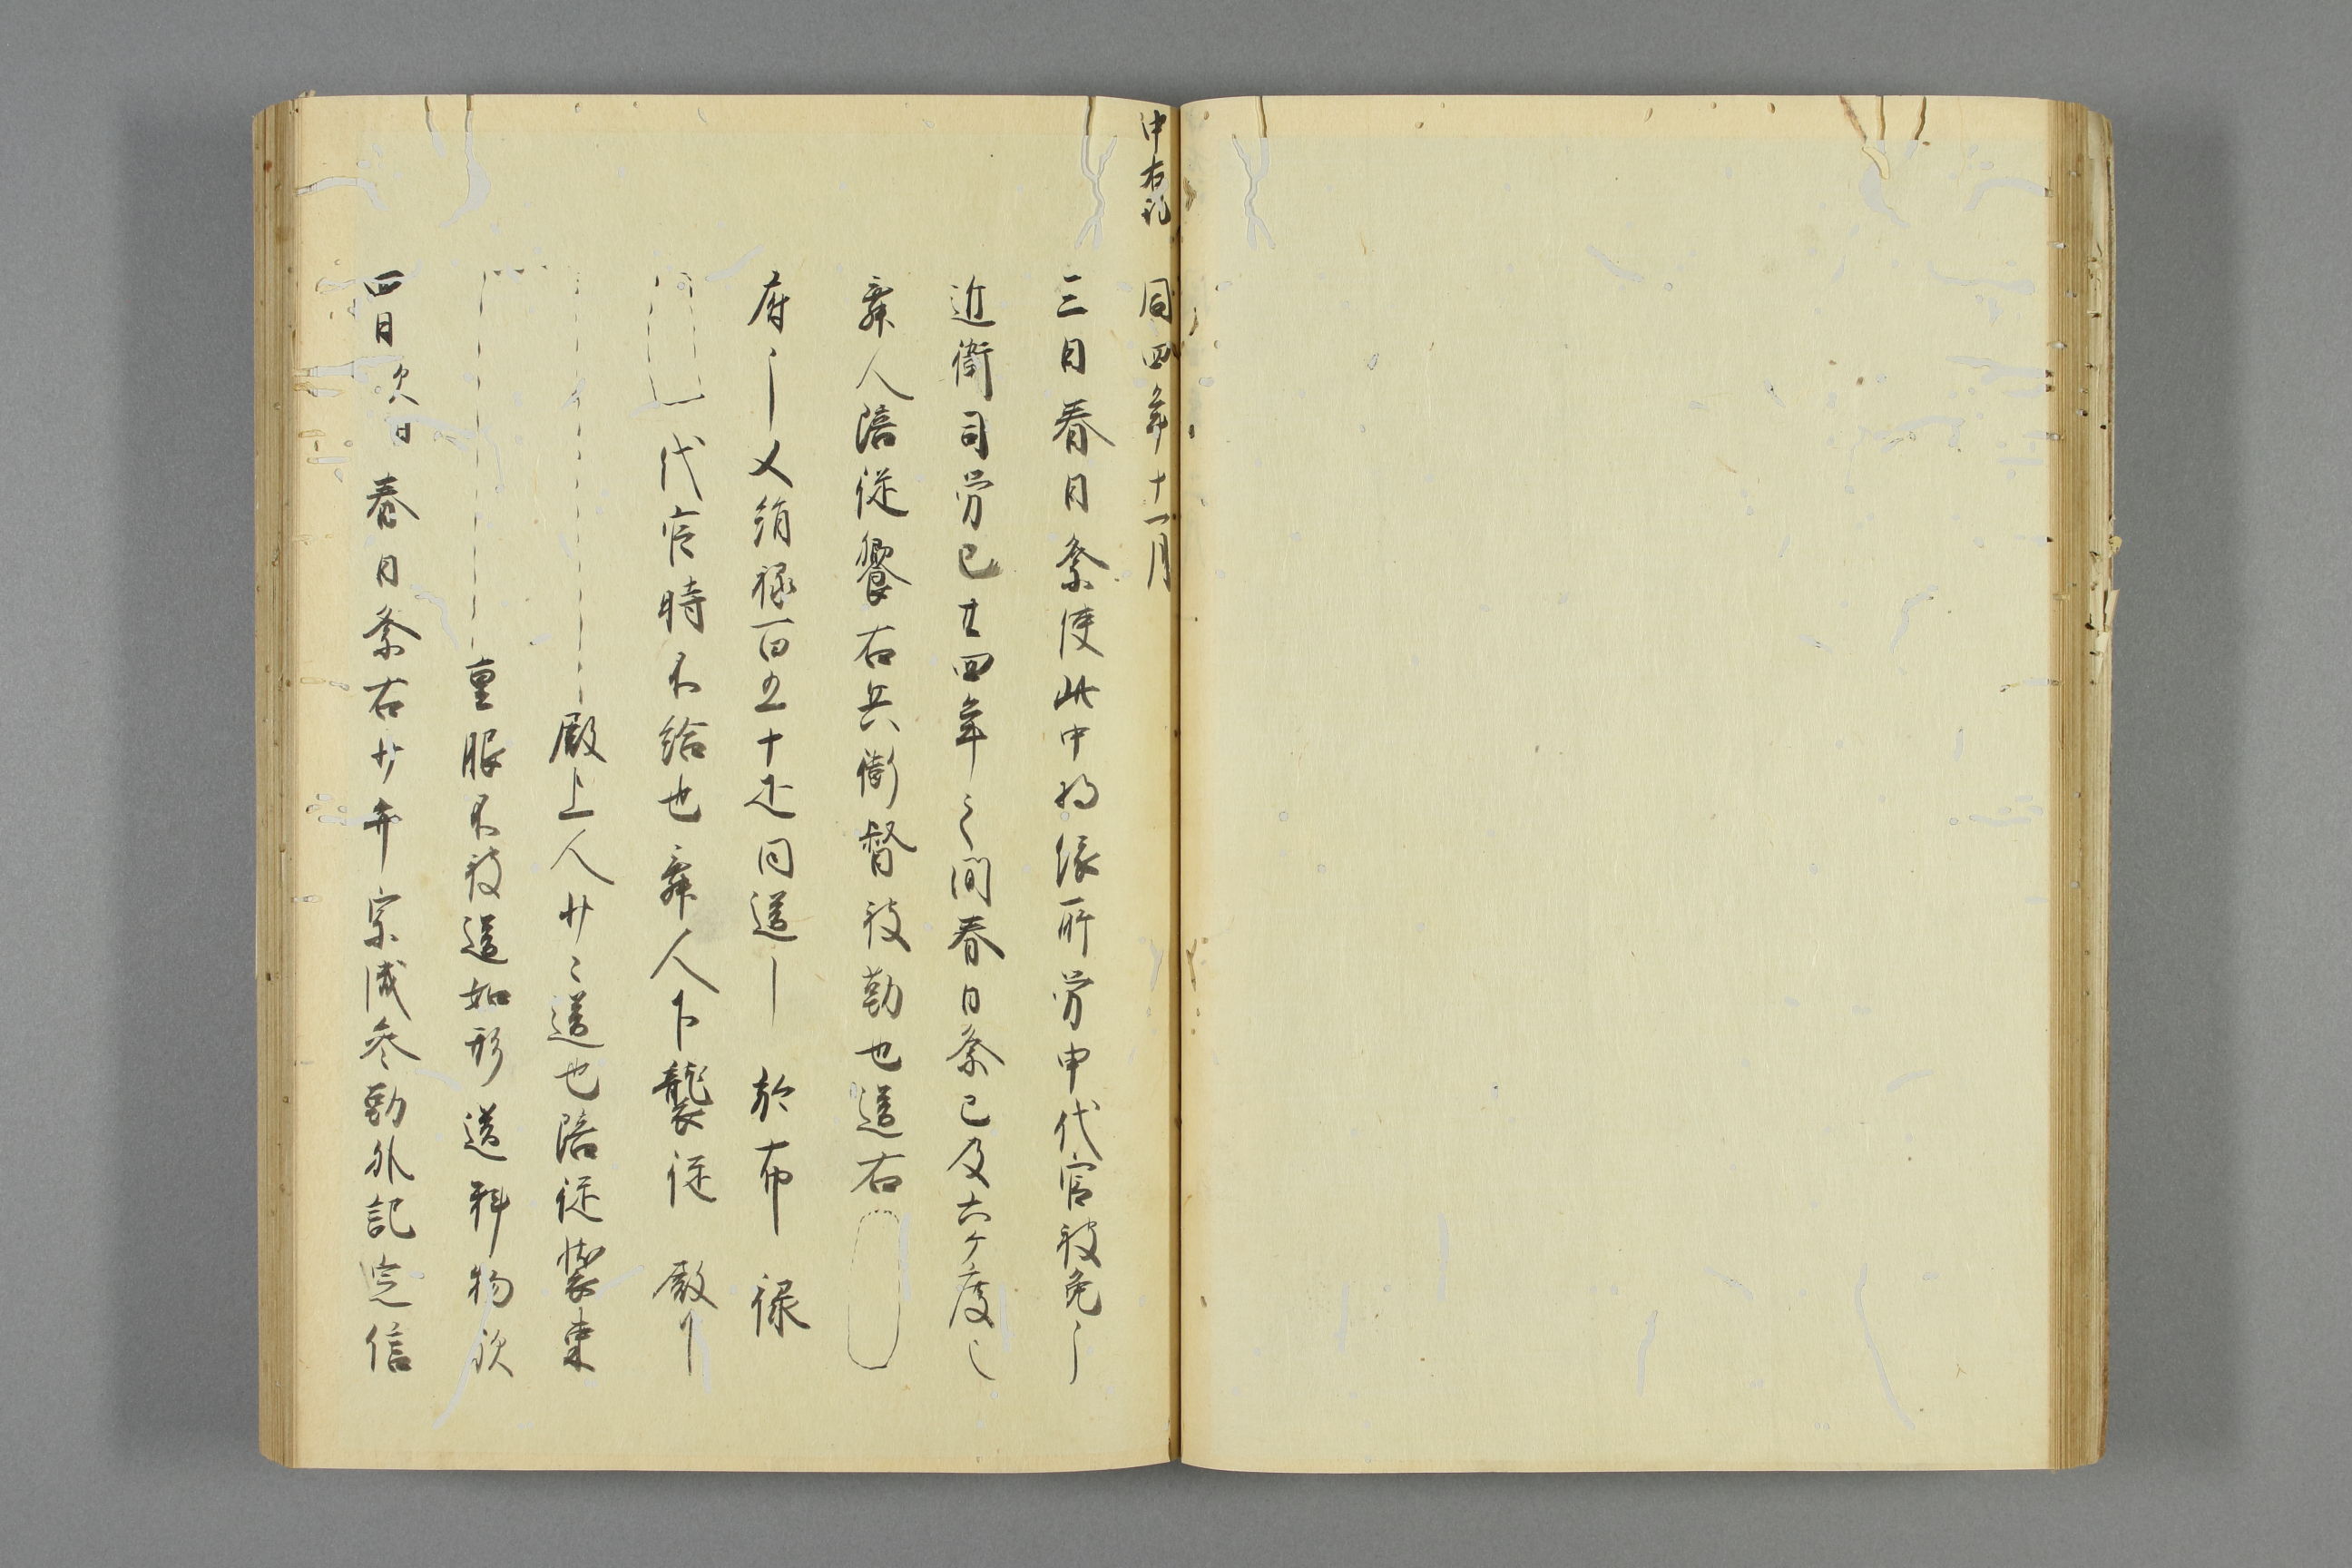 中右記
同四年十一月
三日春日祭使此中将依所労申代官被免
近衛司労已廿四年之間春日祭已及六ケ度
舞人陪従饗右兵衛督被勤也送右
府 又絹禄百五十疋同送 於布禄
代官時不給也舞人下襲従殿
殿上人廿々送也陪従装束
重服不被送如形送料物歟
四日次日春日祭右少弁宗成参勤外記定信